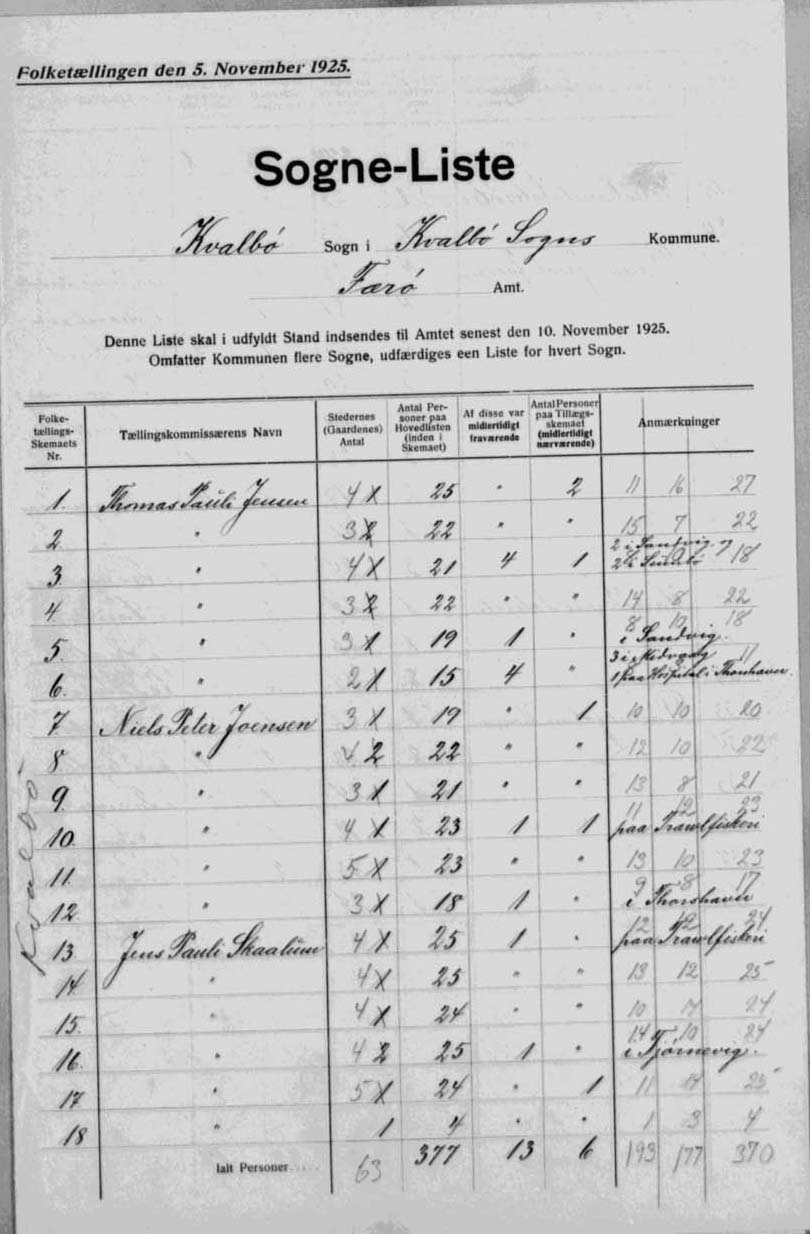 Folketællingen den 5. November 1925.
Sogne-Liste
Kvalbø Sogn i Kvalbø Sogns Kommune.
Færø Amt.
Denne Liste skal i udfyldt Stand indsendes til Amtet senest den 10. November 1925.
Omfatter Kommunen flere Sogne, udfærdiges een Liste for hvert Sogn.
Folketællings-Skemaets Nr. Tællingskommissærens Navn Stedernes (Gaardenes) Antal Antal Personer paa Hovedlisten (inden i Skemaet) Af disse var midlertidigt fraværende Antal Personer paa Tillægsskemaet (midlertidigt nærværende) Anmærkninger
1. Thomas Pauli Jensen 4 25 " 2 11 16 27
2. " 3 22 " " 15 7 22
3. " 4 21 4 1 2 i Sandvig og 2 i 9 18
4. " 3 22 " " 14 8 22
5. " 3 19 1 " 8 10 18 i Sandvig.
6. " 2 15 4 " 3 i Midvaag 11 1 paa Hospital i Thorshavn.
7 Niels Peter Joensen 3 19 " 1 10 10 20
8 " 4 2 22 " " 12 10 22
9. " 3 21 " " 13 8 21
10. " 4 23 1 1 11 12 23 paa Trawlfiskeri
11. " 5 23 " " 13 10 23
12. " 3 18 1 " 9 8 17 i Thorshavn
13 Jens Pauli Skaalum 4 25 1 " 12 12 24 paa Trawlfiskeri
14. " 4 25 " " 13 12 25
15. " 4 24 " " 10 14 24
16. " 4 2 25 1 " 14 10 24 i Tjörnevig.
17 " 5 24 " 1 11 14 25
18 " 1 4 " " 1 3 4
Ialt Personer..... 63 377 13 6 193 177 370
Kvalbø